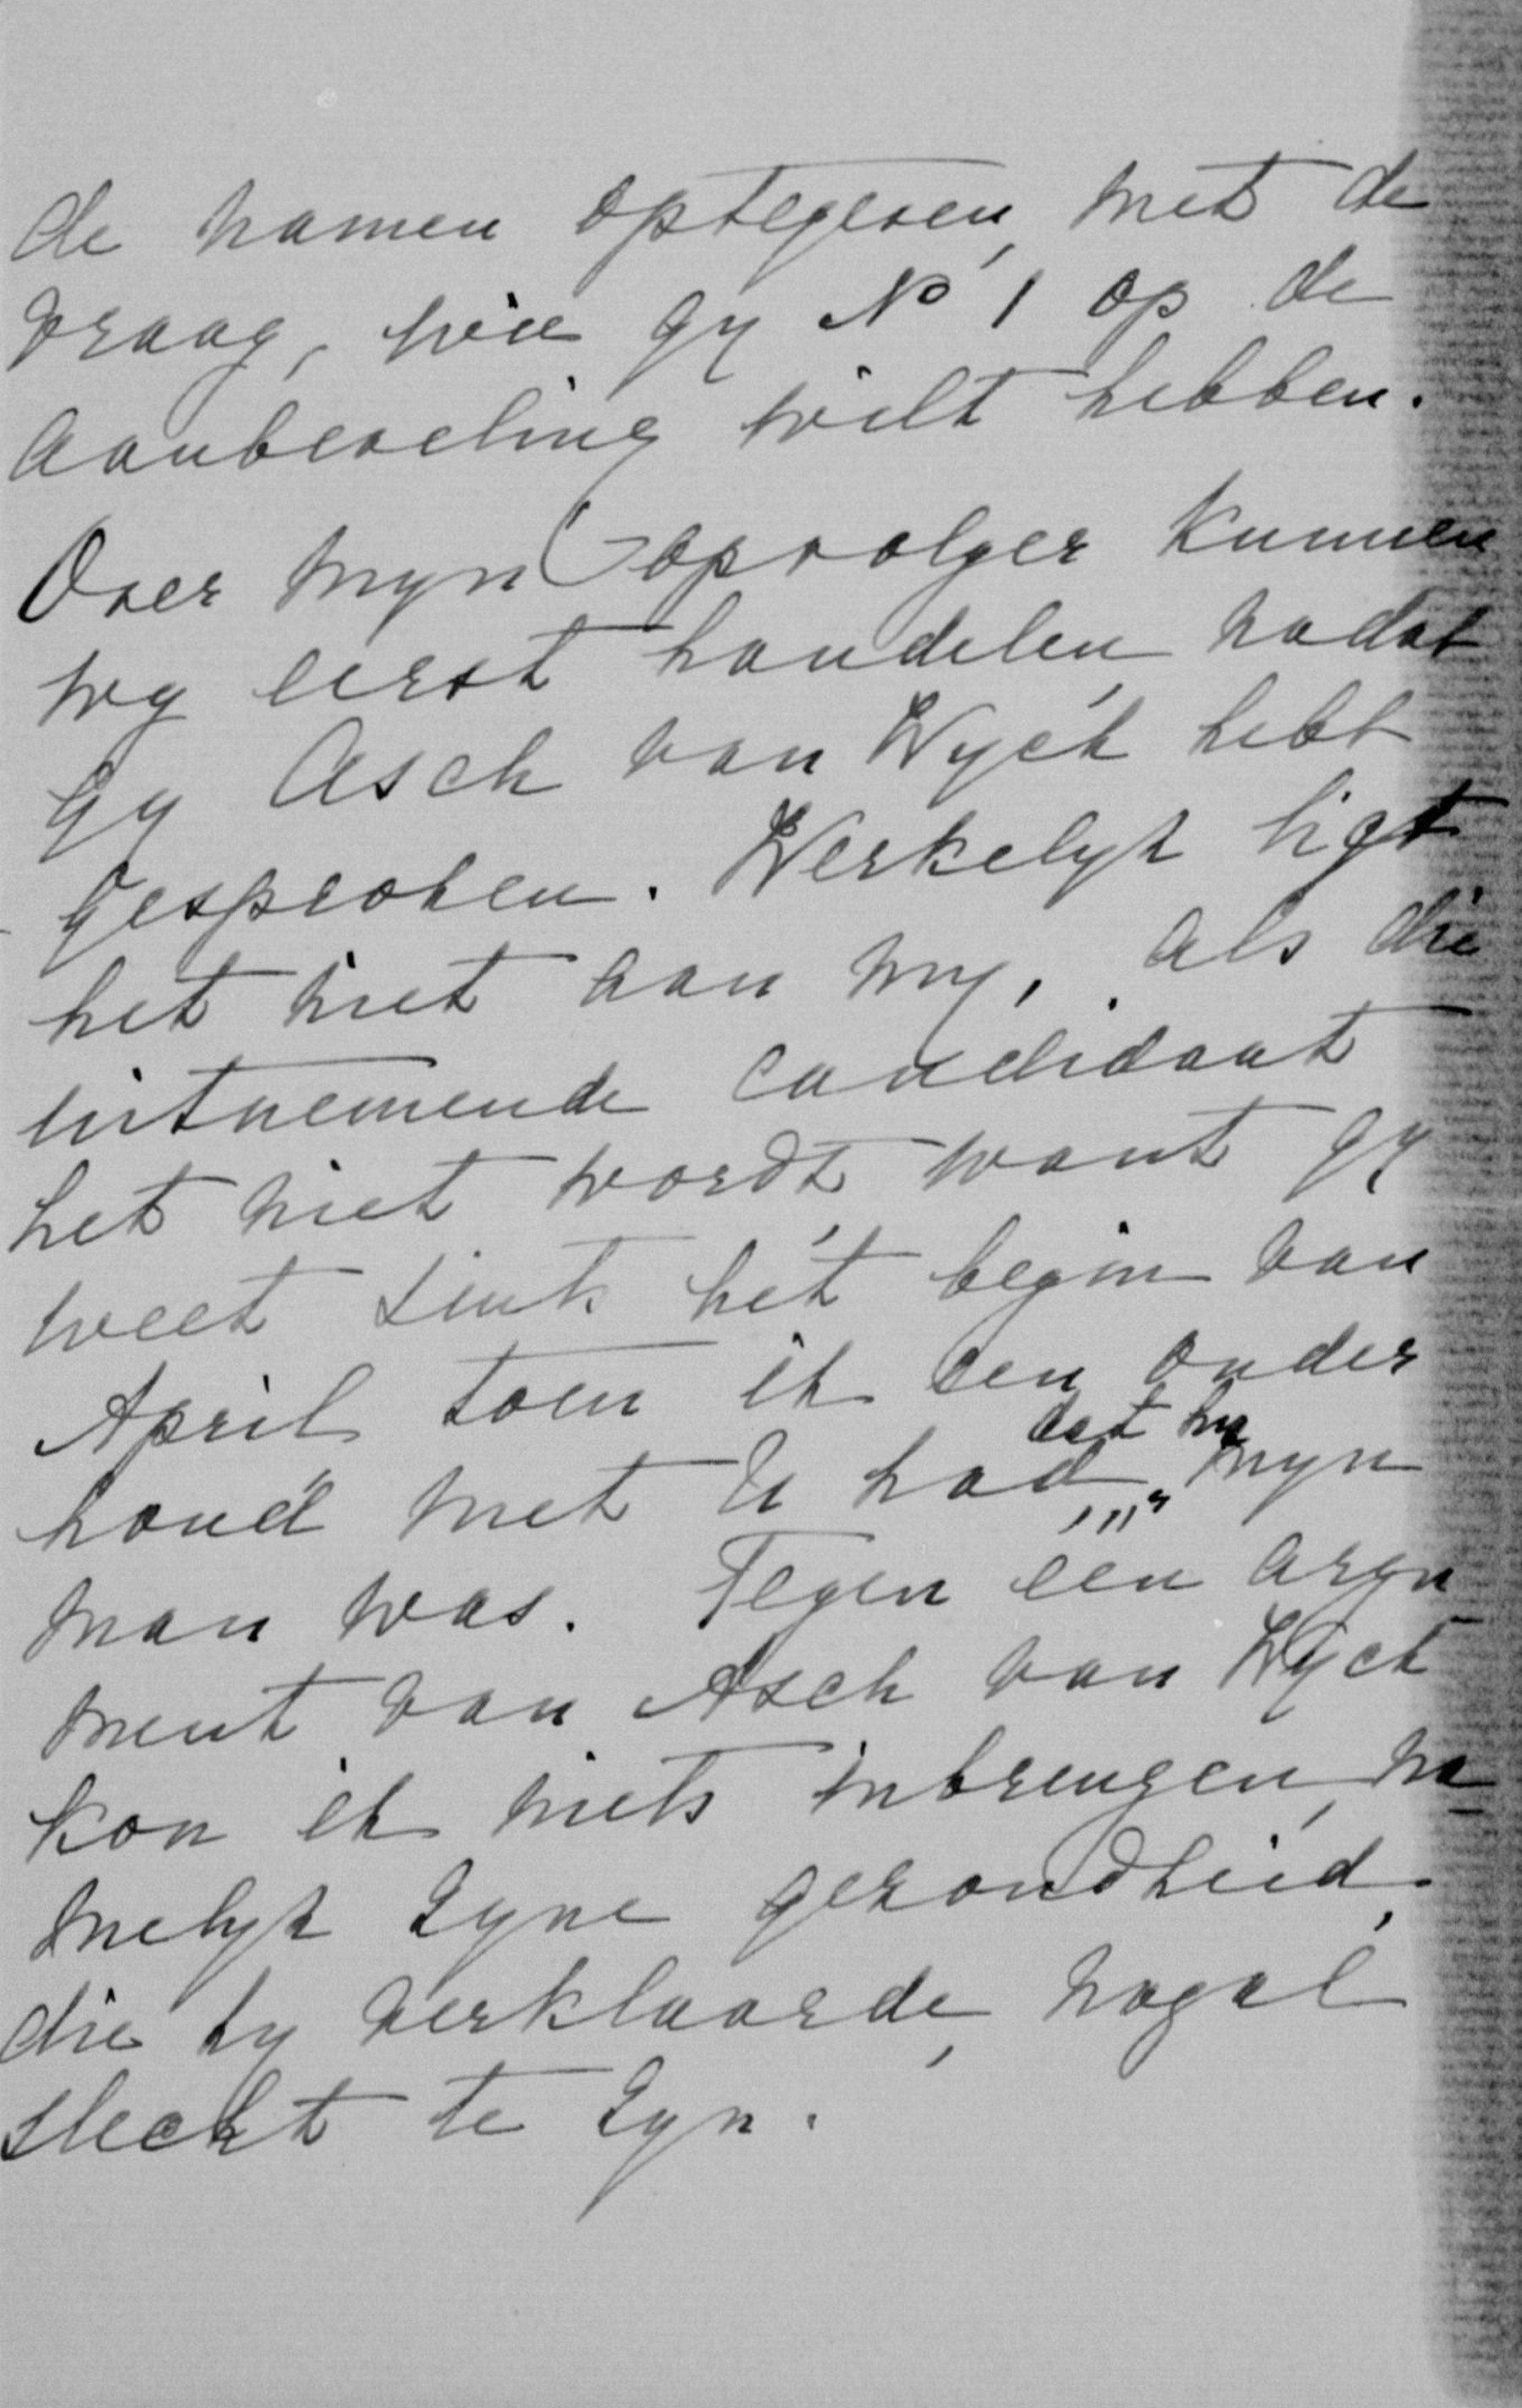 de namen optegeven, met de
vraag, wie gy No 1 op de
aanbeveling wilt hebben.
Over myn opvolger kunnen
wy eerst handelen, nadat
gy Asch van Wyck hebt
gesproken. Werkelyk ligt
het niet aan my, als die
uitnemende candidaat
het niet wordt, want gy
weet sints het begin van
April toen ik een onder
houd met U had, dat hy myn
man was. Tegen één argu
ment van Asch van Wyck
kon ik niets inbrengen, na
melyk zyne gezondheid,
die hy verklaarde, nogal
slecht te zyn.